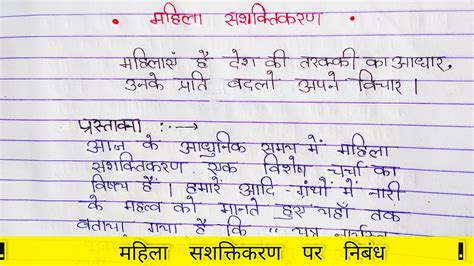 • महिला सशक्तिकरण •
महिलाएं हैं देश की तरक्की का आधार,
उनके प्रति बदलो अपने विचार।
प्रस्तावना :-→
आज के आधुनिक समय में महिला
सशक्तिकरण एक विशेष चर्चा का
विषय हैं। हमारे आदि-ग्रंथों में नारी
के महत्व को मानते हुए यहाँ तक
बताया गया है कि "यत्र नार्यस्तु
! महिला सशक्तिकरण पर निबंध !